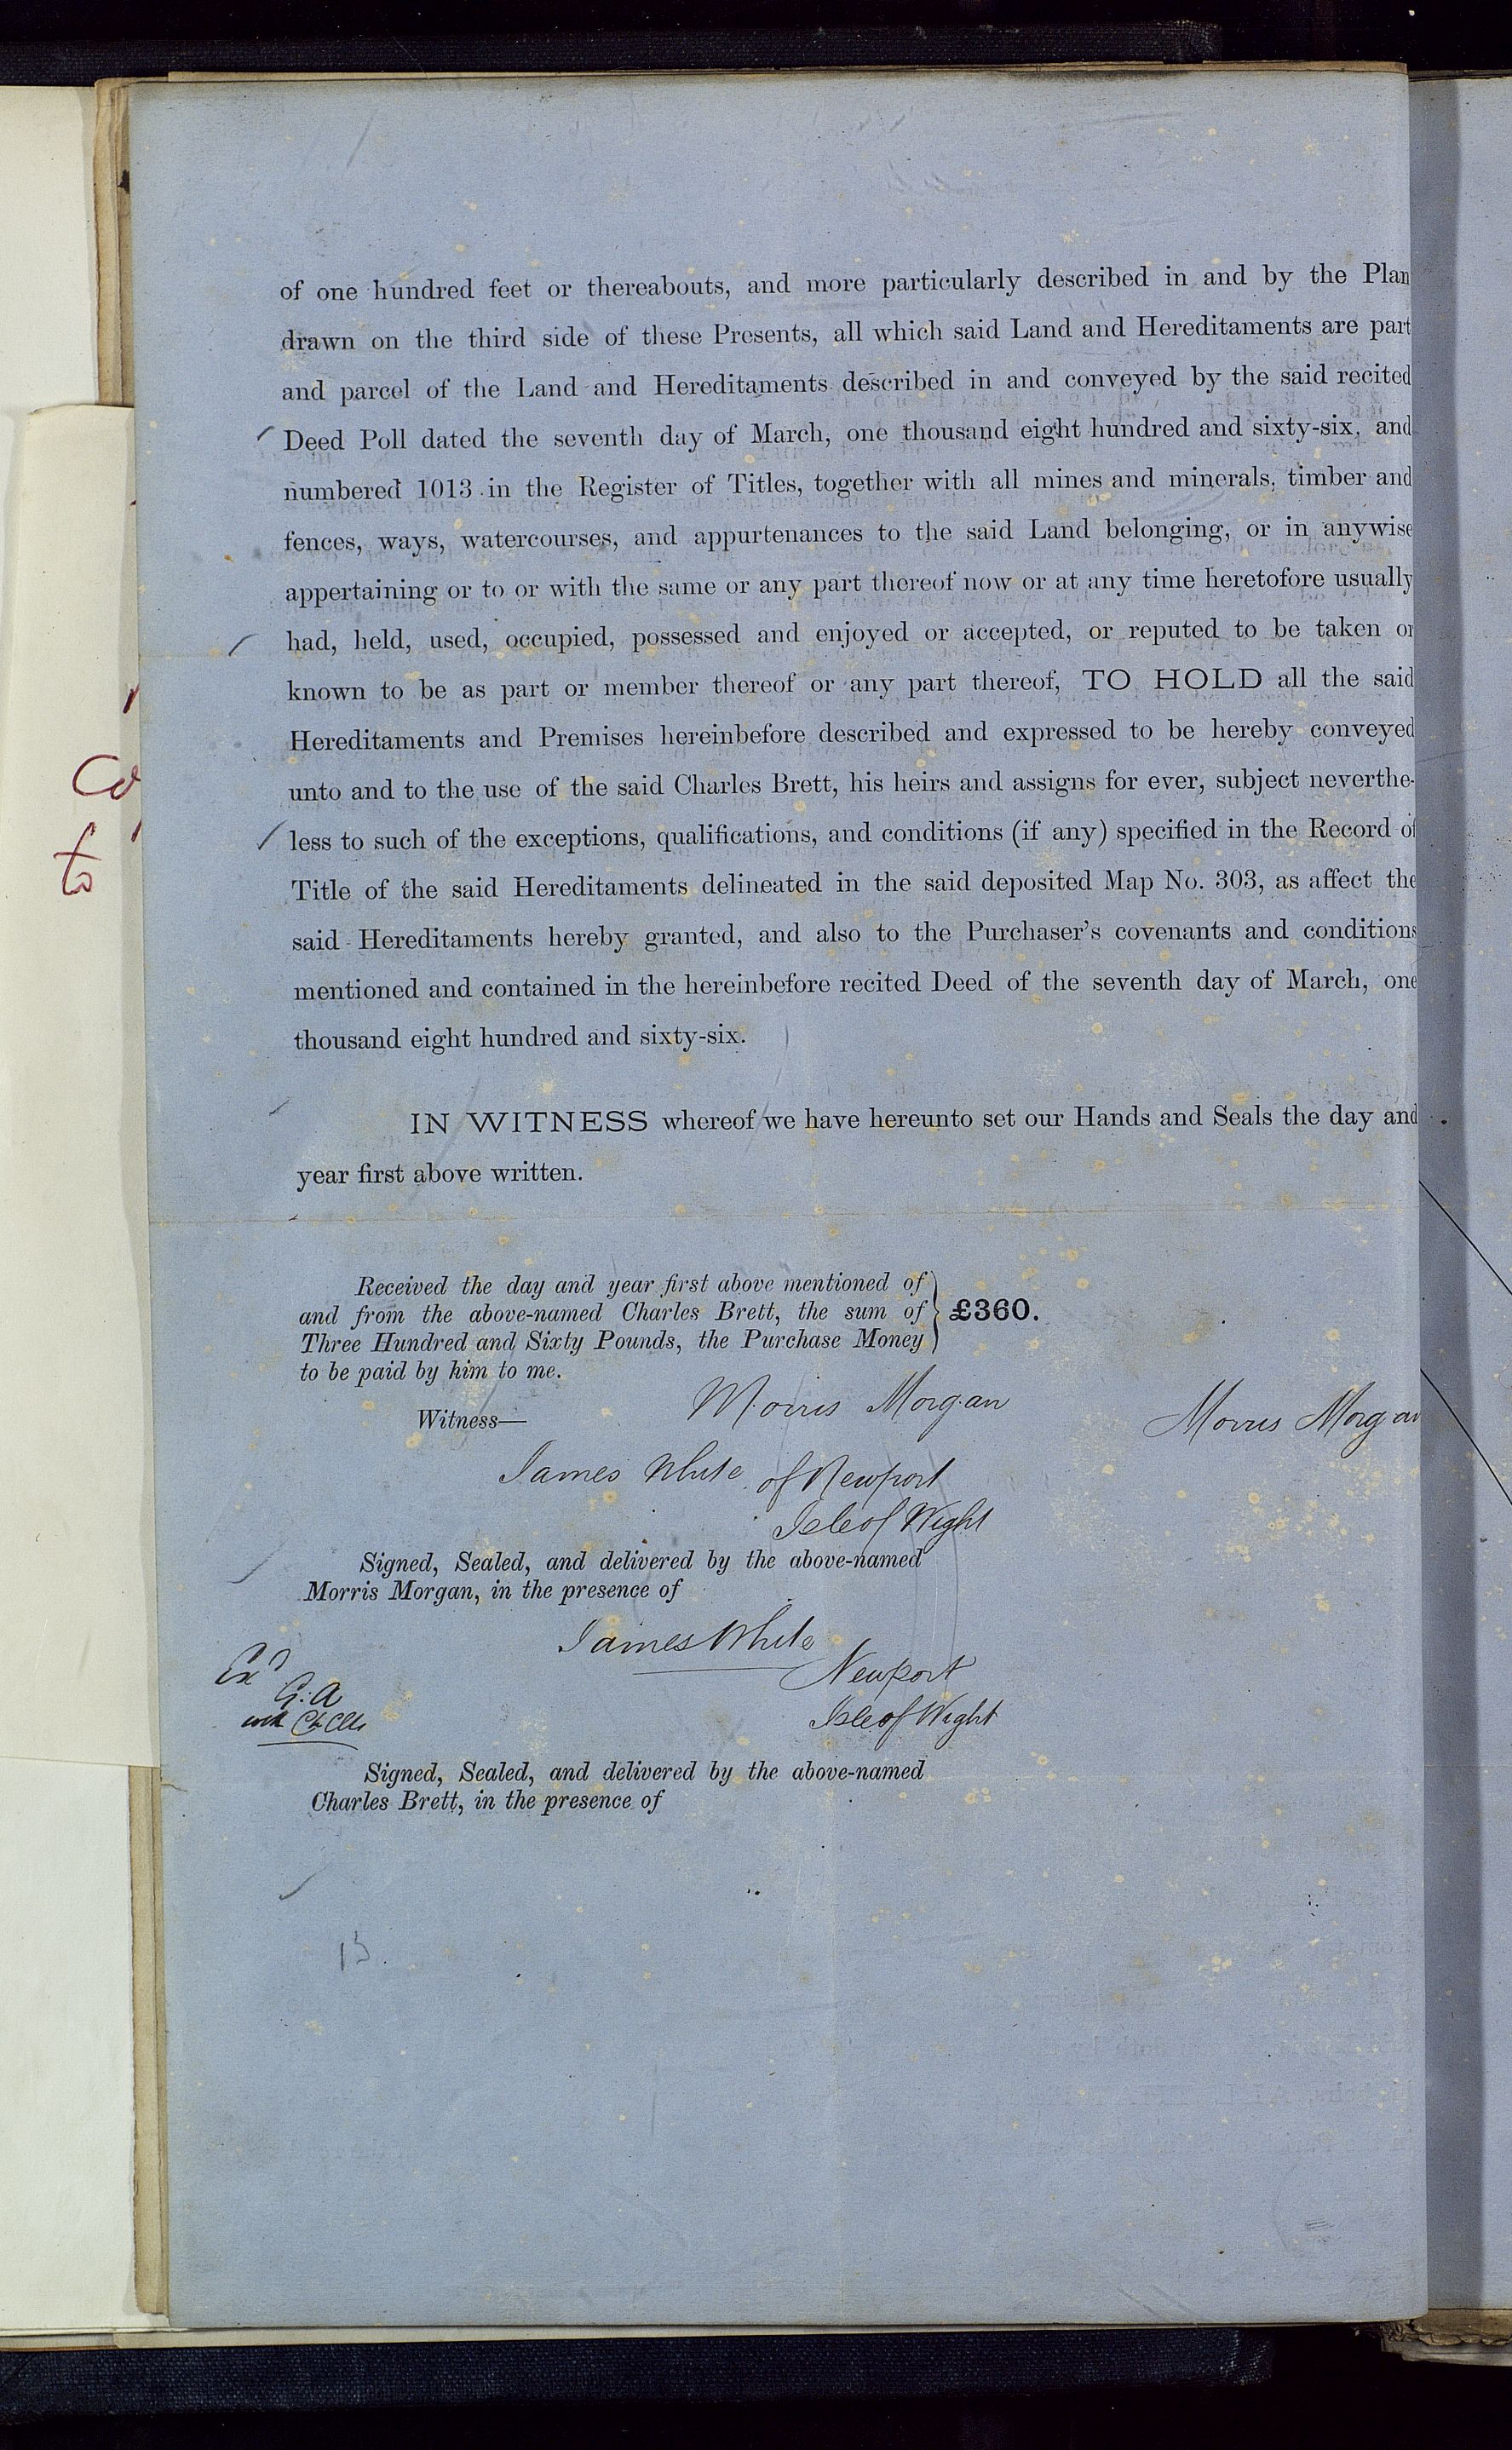 of one hundred feet or thereabouts, and more particularly described in and by the Plan
drawn on the third side of these Presents, all which said Land and Hereditaments are part
and parcel of the Land and Hereditaments described in and conveyed by the said recited
Deed Poll dated the seventh day of March, one thousand eight hundred and sixty-six, and
numbered 1013 in the Register of Titles, together with all mines and minerals, timber and
fences, ways, watercourses, and appurtenances to the said Land belonging, or in anywise
appertaining or to or with the same or any part thereof now or at any time heretofore usually
had, held, used, occupied, possessed and enjoyed or accepted, or reputed to be taken or
known to be as part or member thereof or any part thereof, TO HOLD all the said
Hereditaments and Premises hereinbefore described and expressed to be hereby conveyed
unto and to the use of the said Charles Brett, his heirs and assigns for ever, subject neverthe-
less to such of the exceptions, qualifications, and conditions (if any) specified in the Record of
Title of the said Hereditaments delineated in the said deposited Map No. 303, as affect the
said Hereditaments hereby granted, and also to the Purchaser's covenants and conditions
mentioned and contained in the hereinbefore recited Deed of the seventh day of March, one
thousand eight hundred and sixty-six.
IN WITNESS whereof we have hereunto set our Hands and Seals the day and
year first above written.
Received the day and year first above mentioned of
and from the above-named Charles Brett, the sum of £360.
Three Hundred and Sixty Pounds, the Purchase Money
to be paid by him to me.
Morris Morgan
Morris Morgan
Witness—
James White of Newport
Isle of Wight
Signed, Sealed, and delivered by the above-named
Morris Morgan, in the presence of
James White
Newport
Isle of Wight
Exd
G. A
Signed, Sealed, and delivered by the above-named
Charles Brett, in the presence of
13.
to